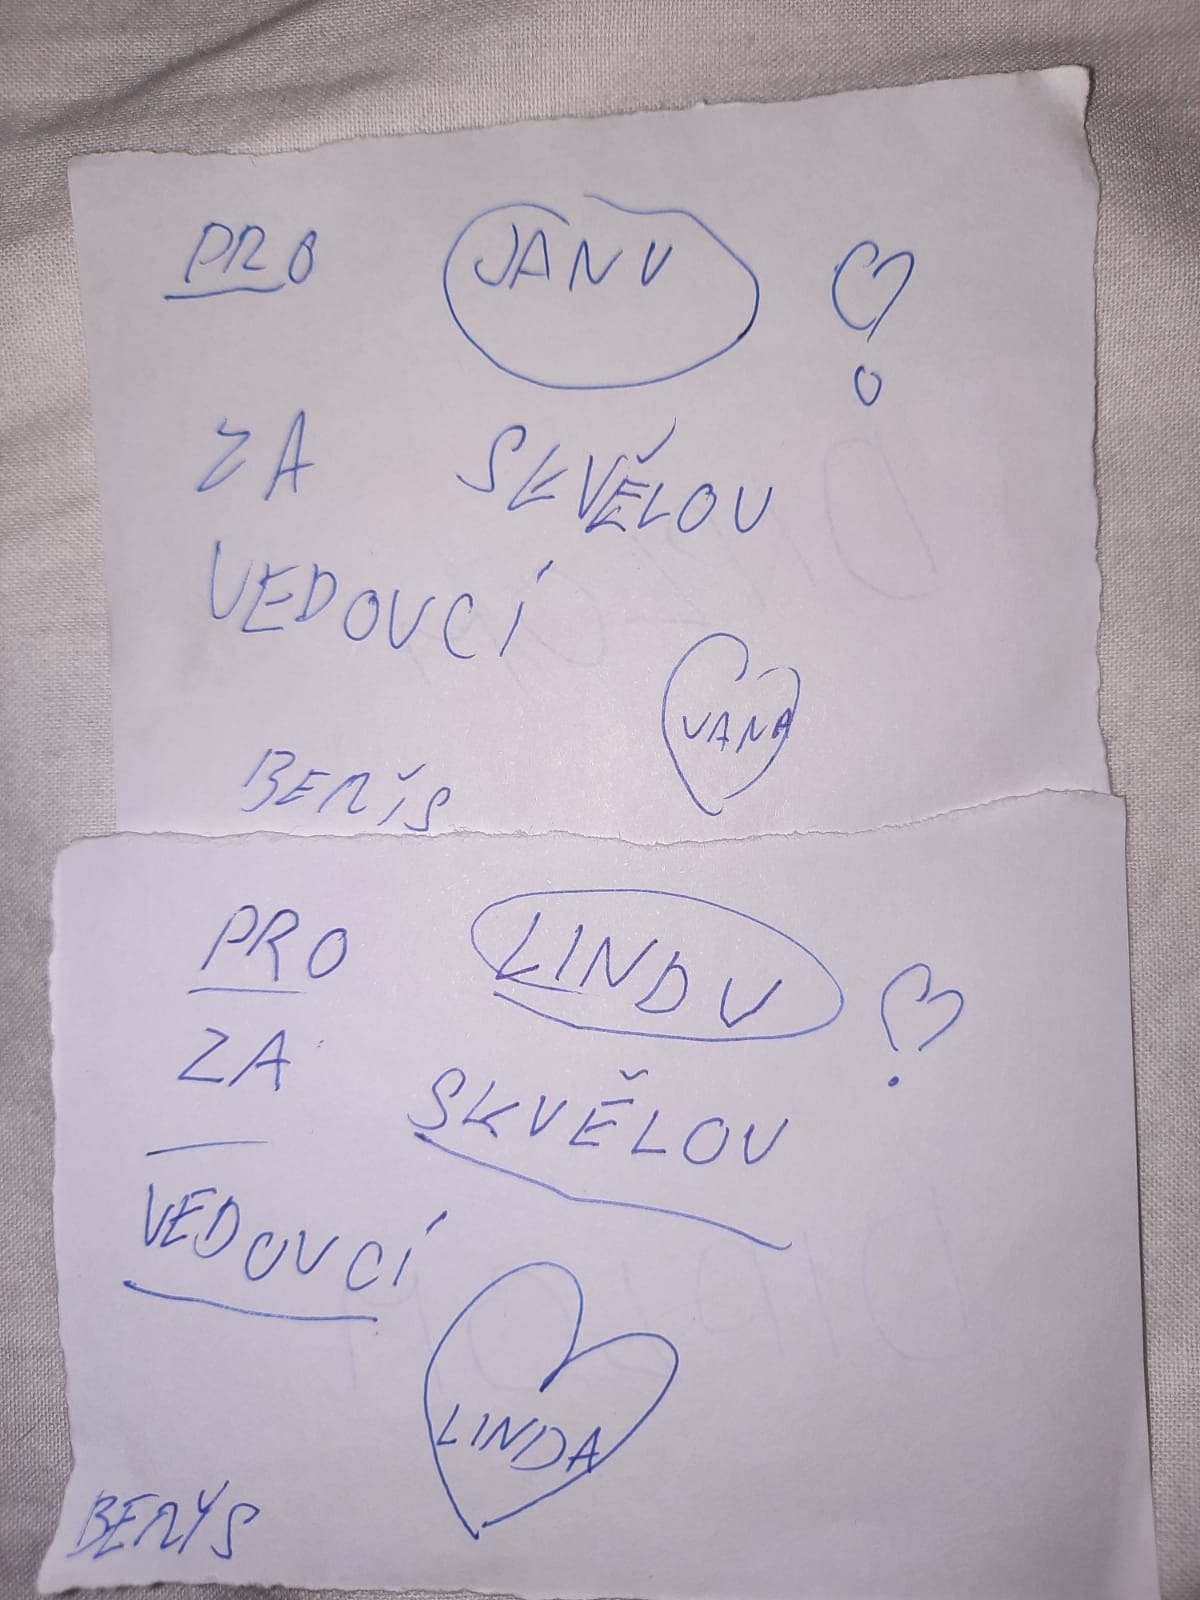 PRO JANU
ZA SKVĚLOU
VEDOUCÍ
JANA
PRO LINDU
ZA SKVĚLOU
VEDOUCÍ
LINDA
BERYS